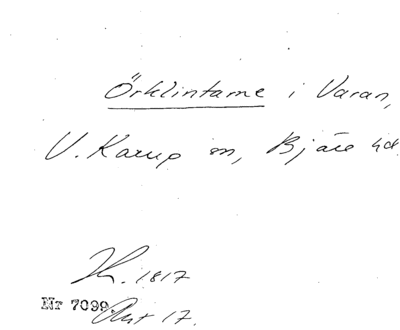 Örklintarne i Varan,
V. Karup sn, Bjäre hd.
Hk. 1817
Nr 7099. Akt 17.